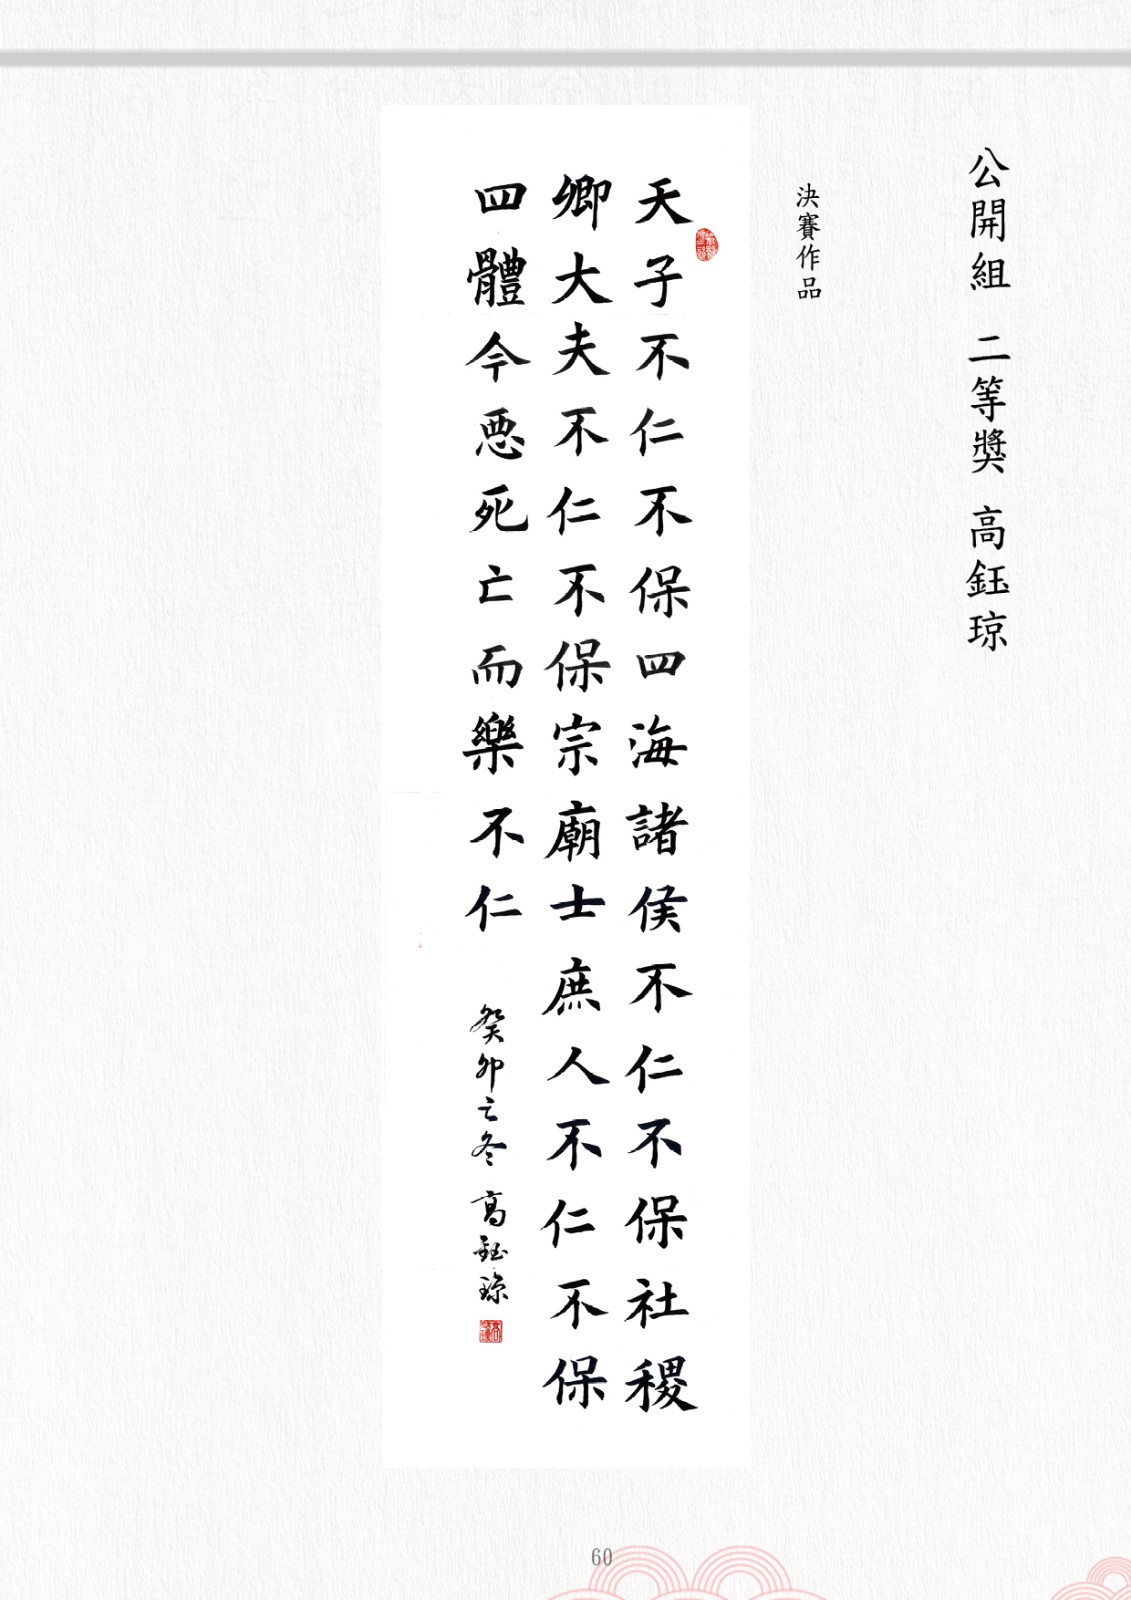 公開組 二等獎 高鈺琼
決賽作品
天子不仁不保四海諸侯不仁不保社稷
卿大夫不仁不保宗廟士庶人不仁不保
四體今惡死亡而樂不仁
癸卯之冬 高鈺琼
60